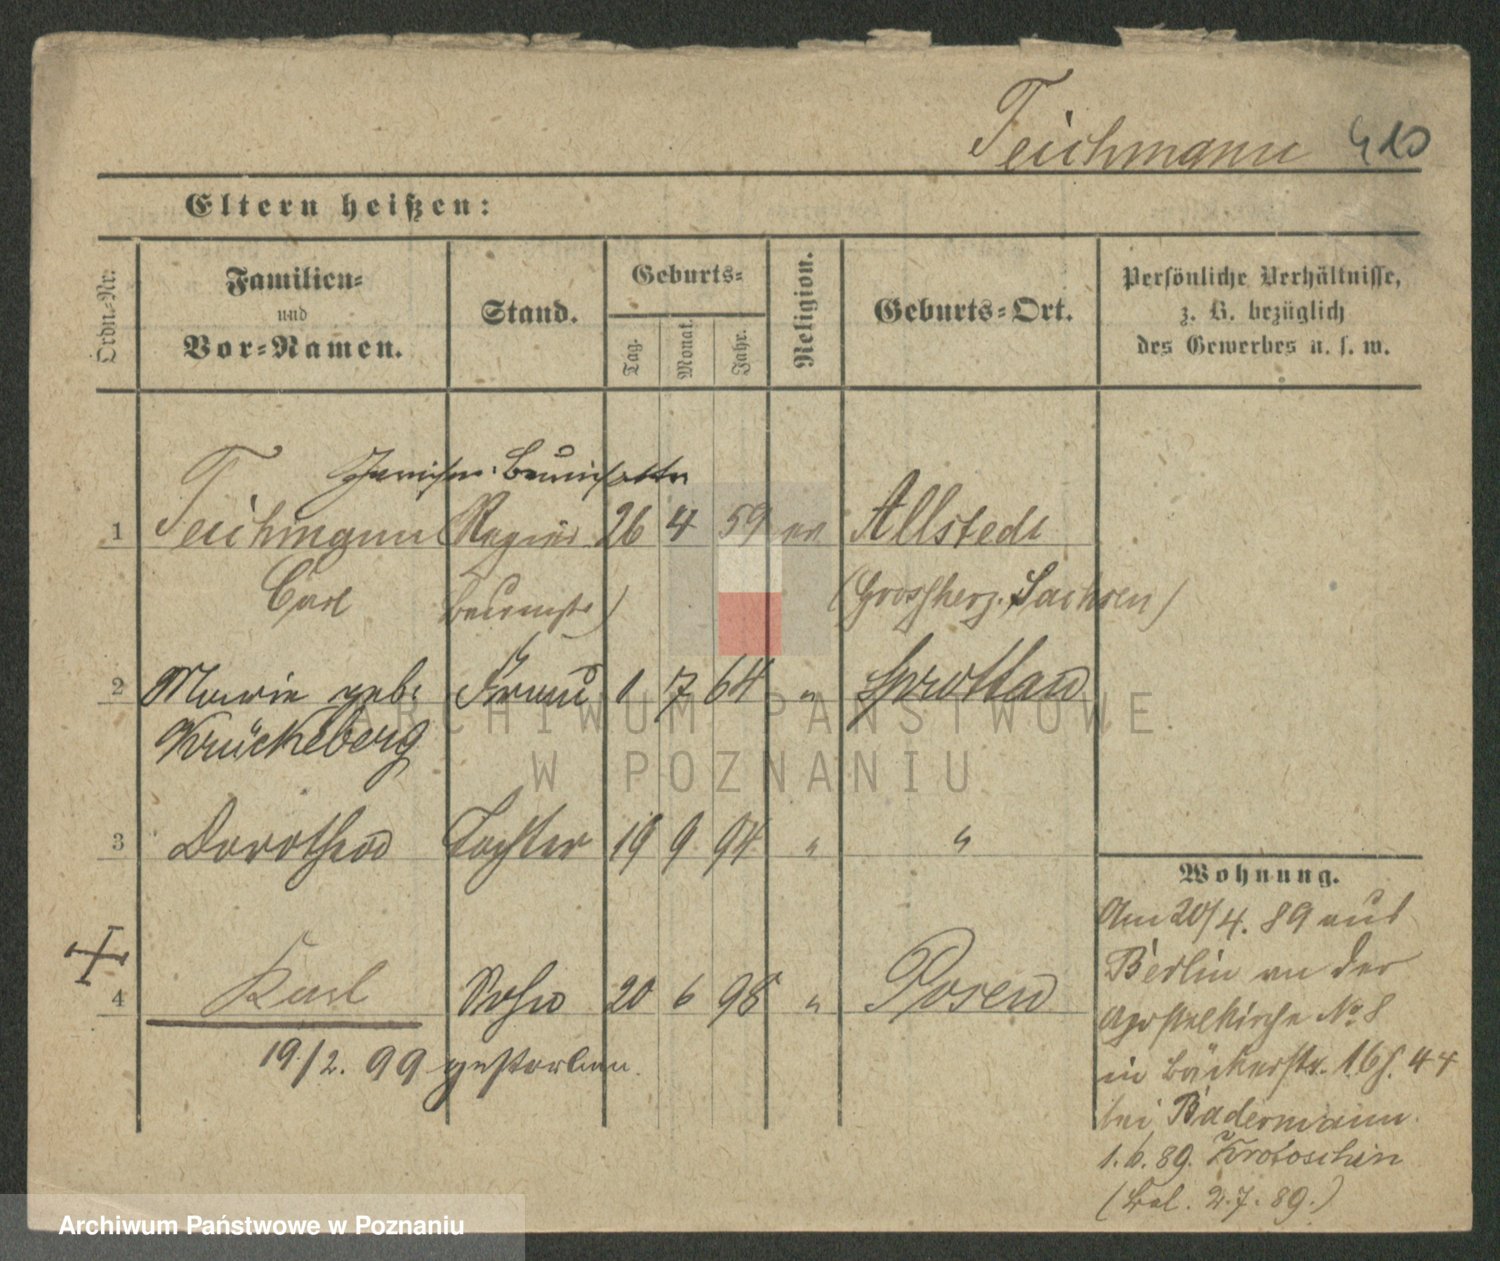 Teichmann 410
Eltern heißen:
Ordn.-Nr.
Familien-
und
Vor-Namen.
Stand.
Geburts-
Tag.
Monat.
Jahr.
Religion.
Geburts-Ort.
Persönliche Verhältnisse,
z. B. bezüglich
des Gewerbes u. s. w.
1 Teichmann 26 4 59 ev Allstedt
Carl (Grossherz. Sachsen)
2 Marie geb. Frau 1 7 64 " Sprottau
Krückeberg
3 Dorothea Tochter 19 9 94 " "
4 Karl Sohn 20 6 98 " Posen
19/2. 99 gestorben.
Wohnung.
Am 20/4. 89 aus
Berlin an der
Apostelkirche No 8
in Bäckerstr. 44
bei Badermann.
1.6.89. Krotoschin
2.7.89.)
ARCHIWUM PAŃSTWOWE
W POZNANIU
Archiwum Państwowe w Poznaniu